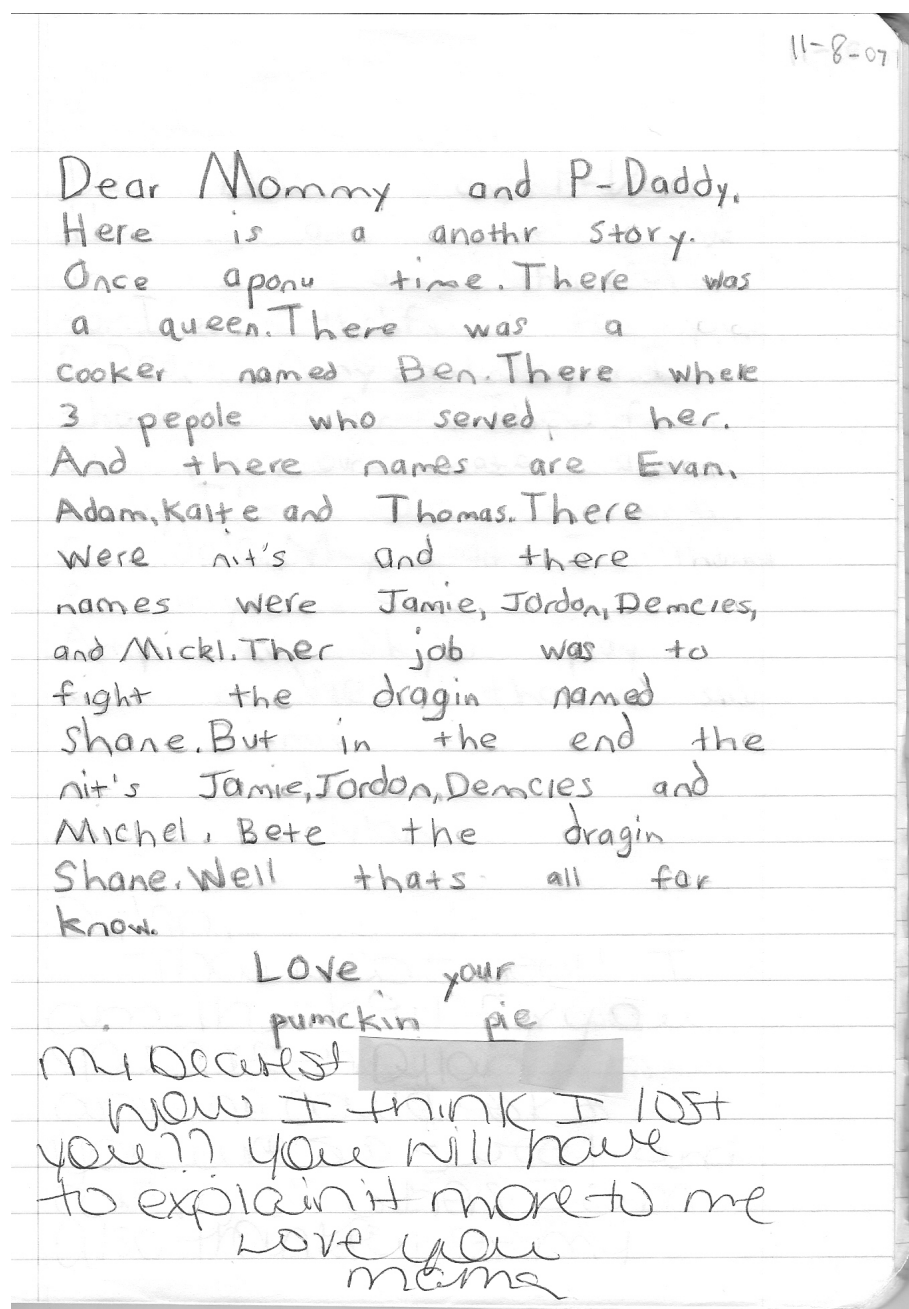 11-8-07
Dear Mommy and P-Daddy.
Here is a anothr story.
Once aponu time. There was
a queen. There was a
cooker named Ben. There where
3 pepole who served her.
And there names are Evan,
Adam, Kaite and Thomas. There
were nit's and there
names were Jamie, Jordon, Demcies,
and Mickl. Ther job was to
fight the dragin named
Shane. But in the end the
nit's Jamie, Jordon, Demcies and
Michel. Bete the dragin
Shane. Well thats all for
know.
Love your
pumckin pie
My Dearest
Now I think I lost
you?? you will have
to explain it more to me
Love you
mama